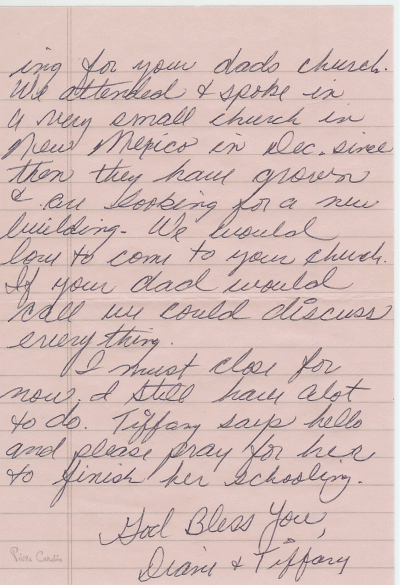 ing for your dads church.
We attended & spoke in
a very small church in
New Mexico in Dec. since
then they have grown
& are looking for a new
building. We would
love to come to your church.
If your dad would
call we could discuss
everything.
I must close for
now. I still have alot
to do. Tiffany says hello
and please pray for her
to finish her schooling.
God Bless You,
Diane & Tiffany
Pierre Cardin